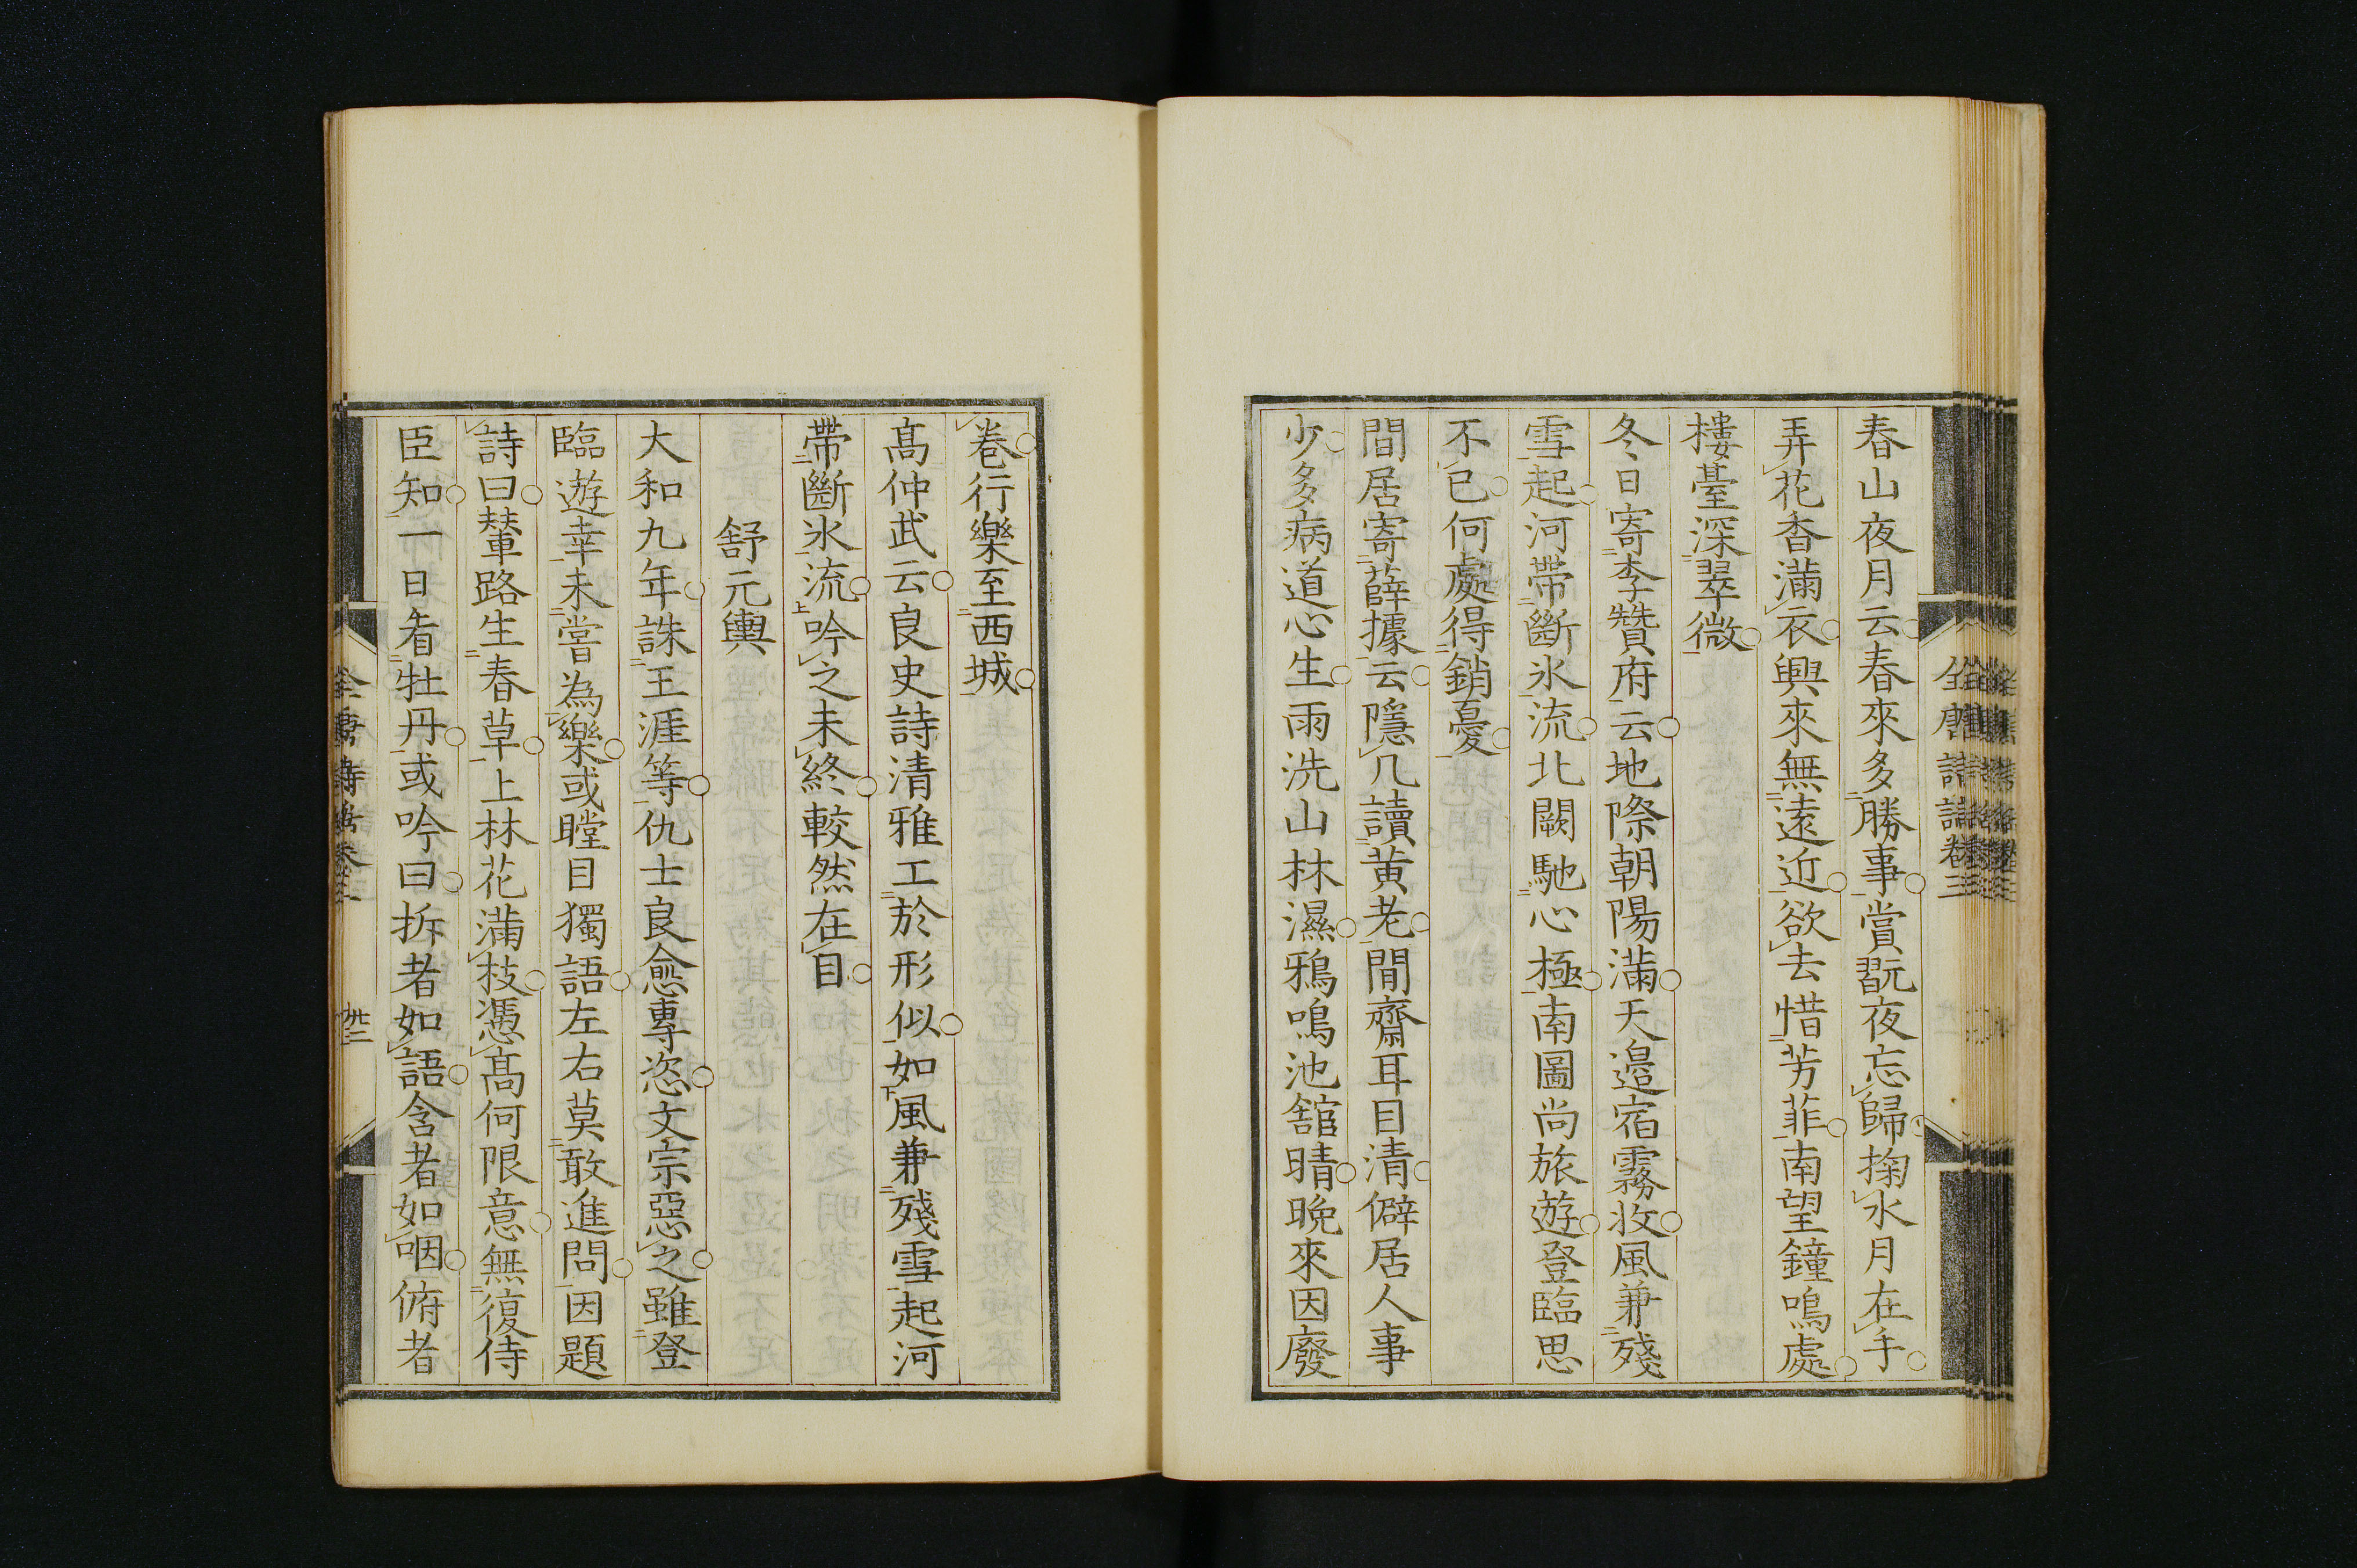 春山夜月云春來多勝事賞翫夜忘歸掬水月在手
弄花香滿衣興來無遠近欲去惜芳菲南望鐘鳴處
樓臺深翠微
冬日寄李贊府云地際朝陽滿天邉宿霧收風兼殘
雪起河帶斷氷流北闕馳心極南圖尚旅遊登臨思
不已何處得銷憂
間居寄薛據云隱几讀黄老閒齋耳目清僻居人事
少多病道心生雨洗山林濕鴉鳴池舘晴晚來因廢
卷行樂至西城
高仲武云良史詩清雅工於形似如風兼殘雪起河
帶斷氷流吟之未終較然在目
舒元輿
大和九年誅王涯等仇士良愈專恣文宗惡之雖登
臨遊幸未嘗為樂或瞠目獨語左右莫敢進問因題
詩曰輦路生春草上林花滿枝憑高何限意無復侍
臣知一日看牡丹或吟曰拆者如語含者如咽俯者
全唐詩話卷三
全唐詩話卷三
卅二